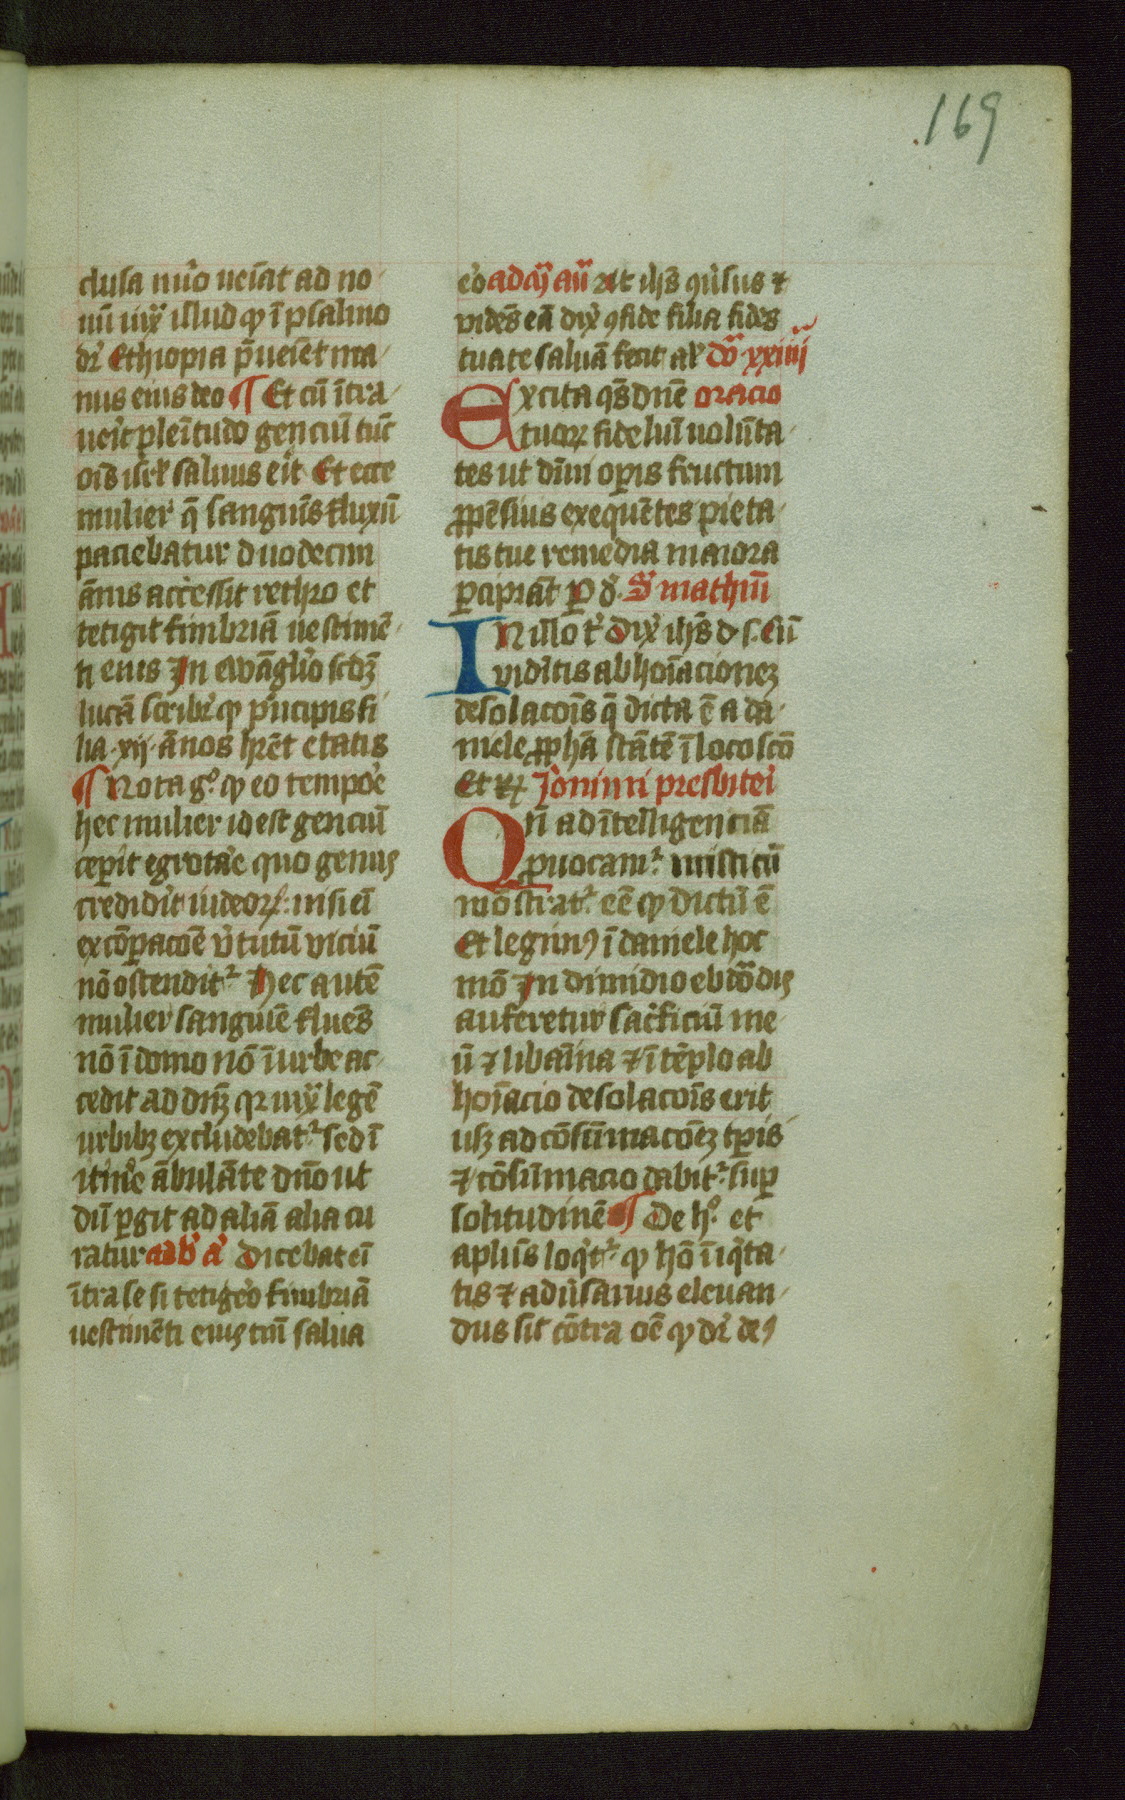 169
clusa nūo ueīat ad no
nū iuxͣ illud qͥ ī psalmo
dr̄ Ethiopia p̄ueīet ma
nus eius deo ¶ Et cū ītra
ueīt plēitudo genciū tūc
oīs isrł saluus eīt Et ecce
mulier q̄ sanguīs fluxū
paciebatur duodecim
ānis accessit rethro et
tetigit fimbriā uestimē
ti eius In ewāglio scd̄ʒ
lucā scribit̓ qͥ p̄ncipis fi
lia xij ānos hr̄et etatis
¶ Nota gͦ qͥ eo tempore
hec mulier id est genciū
ceperit egrotare quo genus
credidit iudeoꝝ nisi ei
ex cōparacōe v̓tutū viciū
nō ostendit᷑ Hec autē
mulier sanguīe fluēs
nō ī domo nō ī urbe ac
cedit ad dnʒ qꝛ iuxͣ legē
urbibʒ excludebat᷑ sed ī
itinere ābulāte dn̄o ut
dū pergit ad aliā alia cu
ratur ad b̓ a̓ Dicebat eī
ītra se si tetigero fimbriā
uestimēti eiꝰ tm̄ salua
ero ad mͣ aū At ih̄s ꝯuersus ⁊
vidēs eā dix̓ ꝯfide filia fides
tua te saluā fecit ał dō xxiiii
Excita qͣs dn̄e oracio
tuoꝝ fideliū uolūta
tes ut diuini operis fructum
ꝓpēsius exequētes pieta
tis tue remedia maiora
percipiāt ꝑ d S̓ matheū
IN illo t̓ dix̓ ih̄s d s Cū
videritis abhoīacionez
desolacoīs q̄ dicta ē a da
niele ꝓpħa stātē ī loco scō
Et rꝝ Jeronimi presbiteri
Qn̄ ad ītelligenciā
ꝓuocam᷑ misticū
mōstrat᷑ eē qͥ dictū ē
Et legimꝰ ī daniele hoc
mō In dimidio ebdōdis
auferetur sacͥficiū me
ū ⁊ libamīa ⁊ ī tēplo ab
hoīacio desolacoīs erit
usʒ ad cōsūmacōeʒ tp̄is
⁊ cōsūmacio dabit᷑ sup
solitudinē ¶ De hͦ et
aplūs loqͥt᷑ qͥ hō īiqͥta
tis ⁊ aduersarius eleuan
dus sit cōtra oē qͥ dr̄ deꝰ